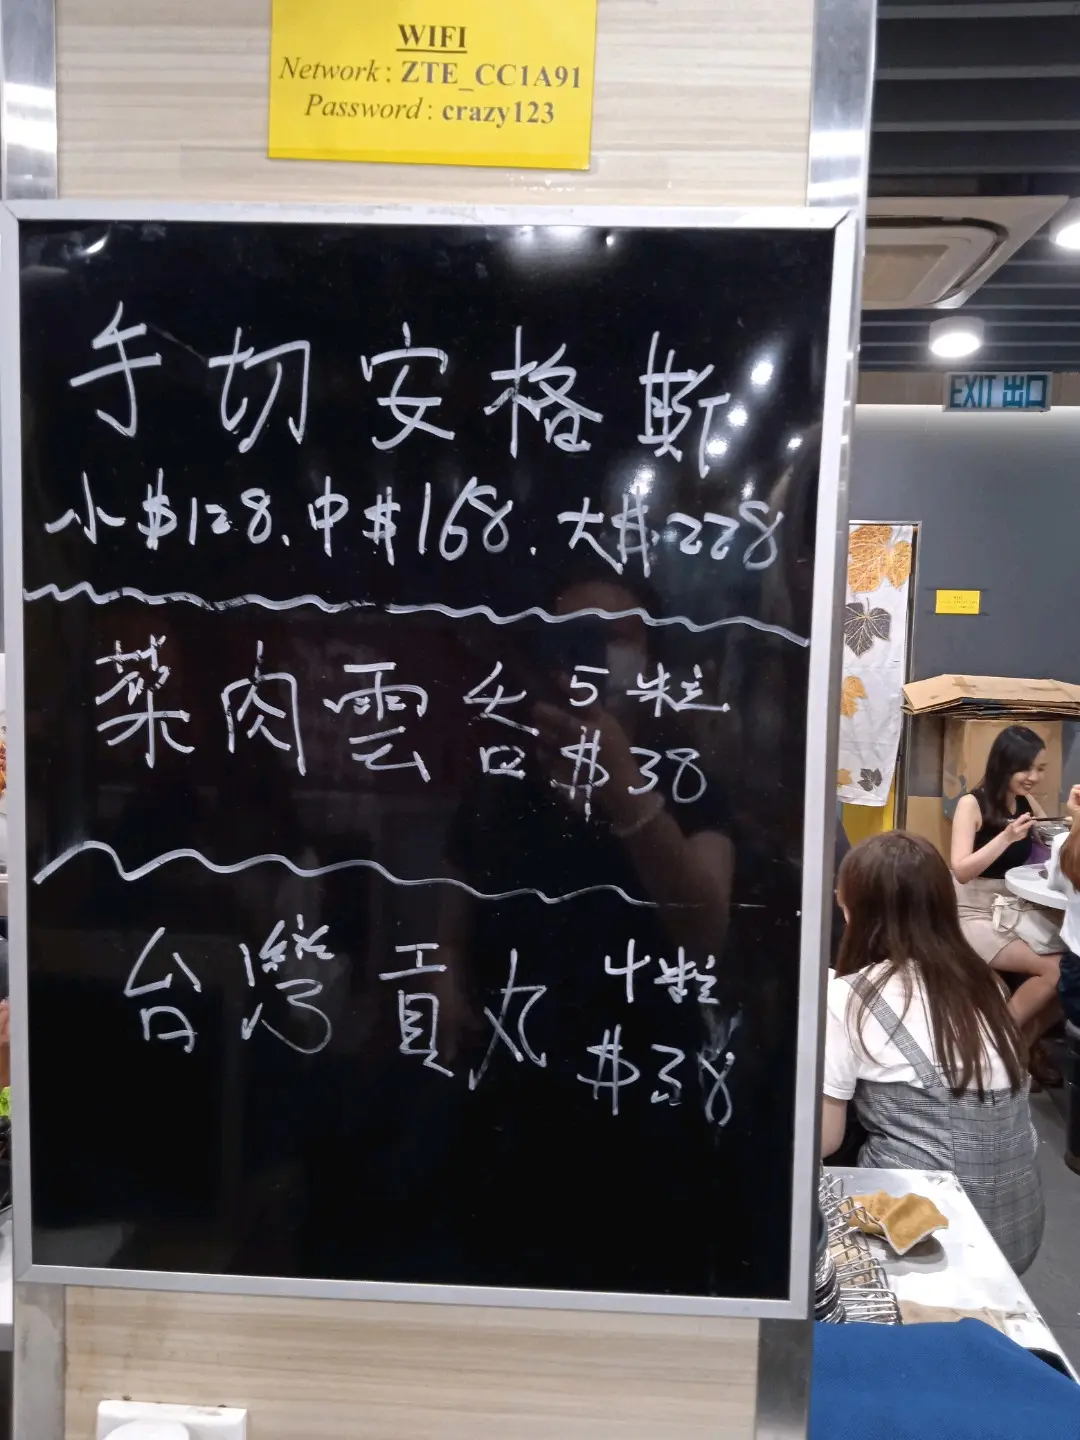 WIFI
Network : ZTE_CC1A91
Password : crazy123
手切安格斯
小$128、中$168、大$228
菜肉雲吞 5粒
$38
台灣貢丸 4粒
$38
EXIT 出口